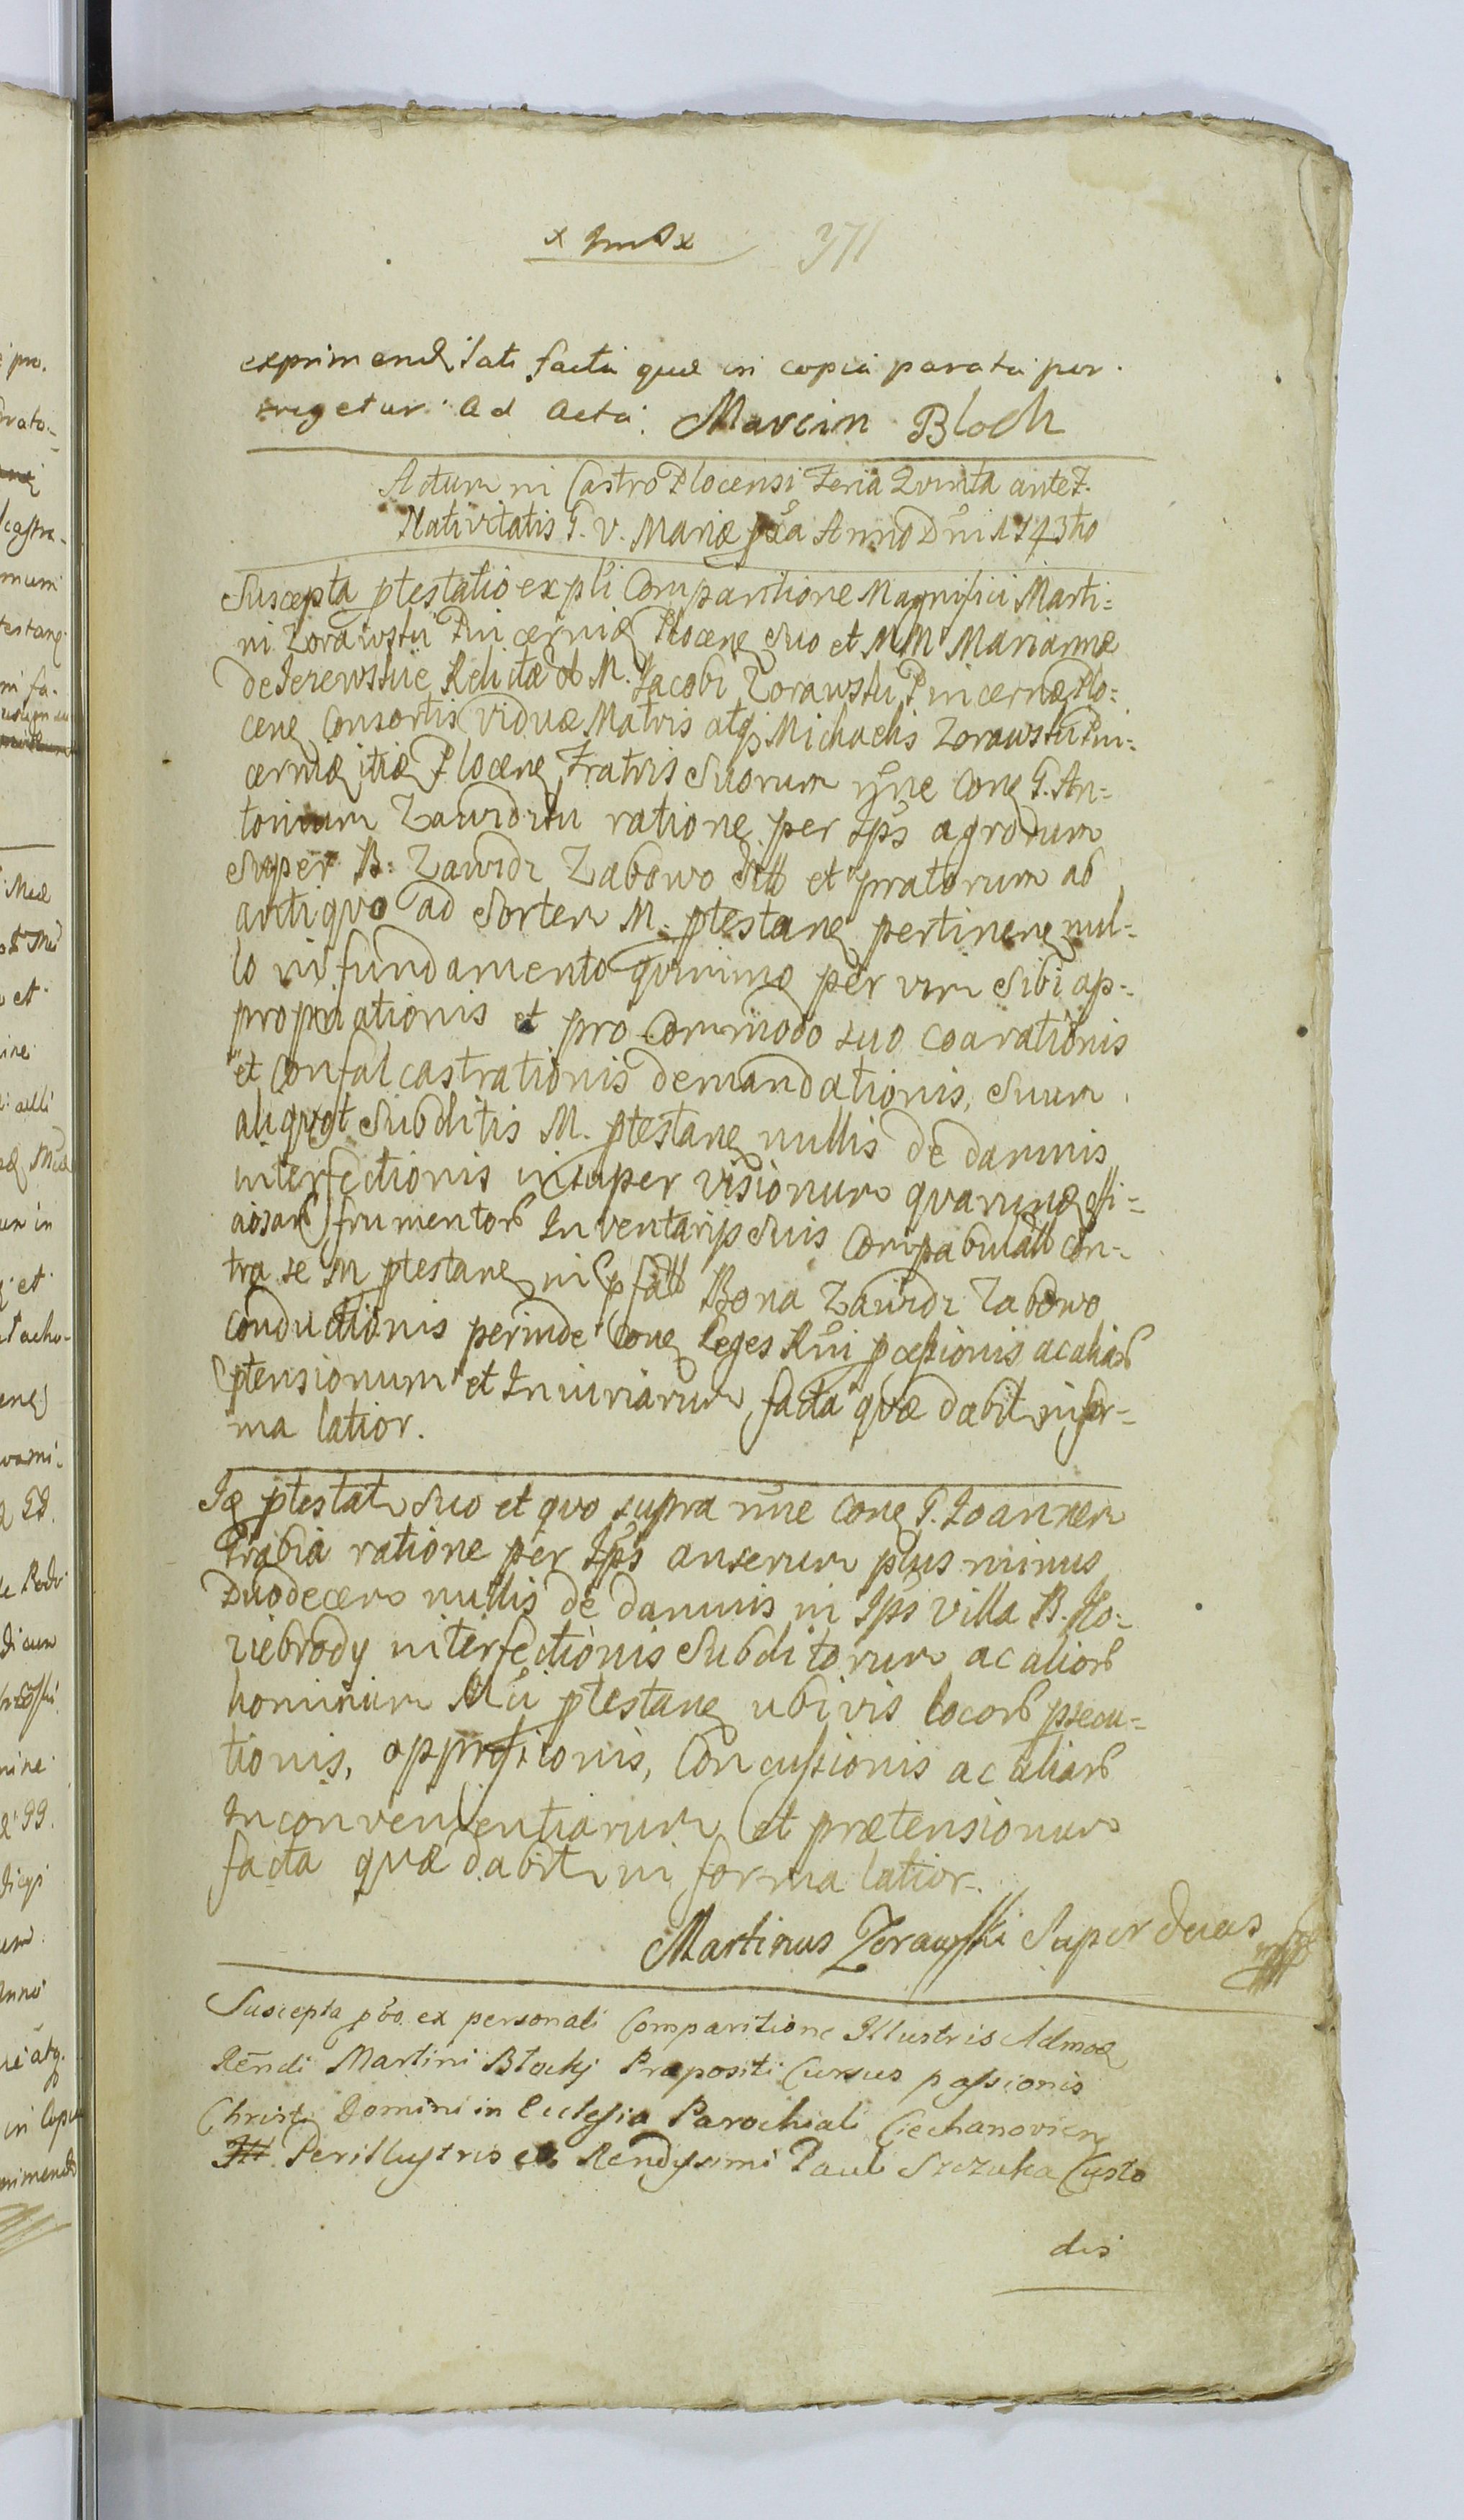 371
exprimend, lati facta quæ in copia parata por
rigetur ad acta. Marcin Bloch
Actum in Castro Plocensi Feria Quinta ante F.
Nativitatis B. V. Mariæ pxa Anno Dni 1743tio
Suscepta ptestatio ex pli Comparitione Magnifici Marti=
ni Zorawskii Pincernidæ Plocen suo et M M Mariannæ
de Jerewskiie Relictæ M. Jacobi Zorawskii Pincernæ Plo=
cen Consortis viduæ Matris atq Michaelis Zorawskii Pin=
cernidæ itid Plocen Fratris suorum nne Con G. An=
tonium Zawidzkii ratione per Ips agrorum
super B. Zawidz Zabowo sitt et pratorum ab
antiquo ad sortem M. ptestan pertinen nul=
lo in fundamento quinimo per vim sibi ap=
propriationis et pro commodo suo coarationis
et Confalcastrationis demandationis, suum
aliquot subditis M. ptestan nullis de damnis
interfectionis insuper visionum quarund
frumentor Inventarijs suis Compabulatt con=
tra se M ptestan in pfatt Bona Zawidz Zabowo
conductionis perinde Con Leges Rni pcessionis ac aliar
ptensionum et Iniuriarum facta quæ dabit in for=
ma latior.
Id ptestat suo et quo supra nne Con G. Joannem
Grabia ratione per Ips anserum plus minus
Duodecem nullis de damnis in Ips villa B. Ko=
ziebrody interfectionis Subditorum ac alior
hominum Mci ptestan ubivis locor psecu=
tionis, oppressionis, Concussionis ac aliar
Inconvenientiarum et prætensionum
facta quæ dabit in forma latior.
Martinus Zorawski super duas mpp
Suscepta pbo. ex personali Comparitione Illustris Admod
Rendi Martini Blocki Præpositi Cursus passionis
Christi Domini in Ecclesia Parochiali Ciechanovien
Perillustris Rendissimi Pauli Szczuka Custo
dis